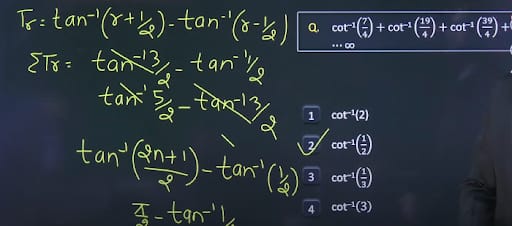 Tr = tan⁻¹(r+1/2) - tan⁻¹(r-1/2)
ΣTr = tan⁻¹3/2 - tan⁻¹1/2
tan⁻¹5/2 - tan⁻¹3/2
tan⁻¹((2n+1)/2) - tan⁻¹(1/2)
π/2 - tan⁻¹1/
Q. cot⁻¹(7/4) + cot⁻¹(19/4) + cot⁻¹(39/4) +
.... ∞
1 cot⁻¹(2)
2 cot⁻¹(1/2)
3 cot⁻¹(1/3)
4 cot⁻¹(3)